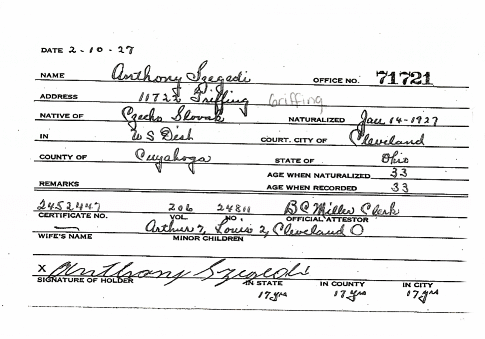 DATE 2-10-27
NAME Anthony Szegedi OFFICE NO. 71721
ADDRESS 11722 Griffing Griffing
NATIVE OF Czecho Slovak NATURALIZED Jan 14-1927
IN U S Dist COURT. CITY OF Cleveland
COUNTY OF Cuyahoga STATE OF Ohio
AGE WHEN NATURALIZED 33
REMARKS AGE WHEN RECORDED 33
2452447 206 24811 B C Miller Clerk
CERTIFICATE NO. VOL NO. OFFICIAL ATTESTOR
Arthur 7, Louis 2, Cleveland O
WIFE'S NAME MINOR CHILDREN
X Anthony Szegedi
SIGNATURE OF HOLDER IN STATE IN COUNTY IN CITY
17 yrs 17 yrs 17 yrs